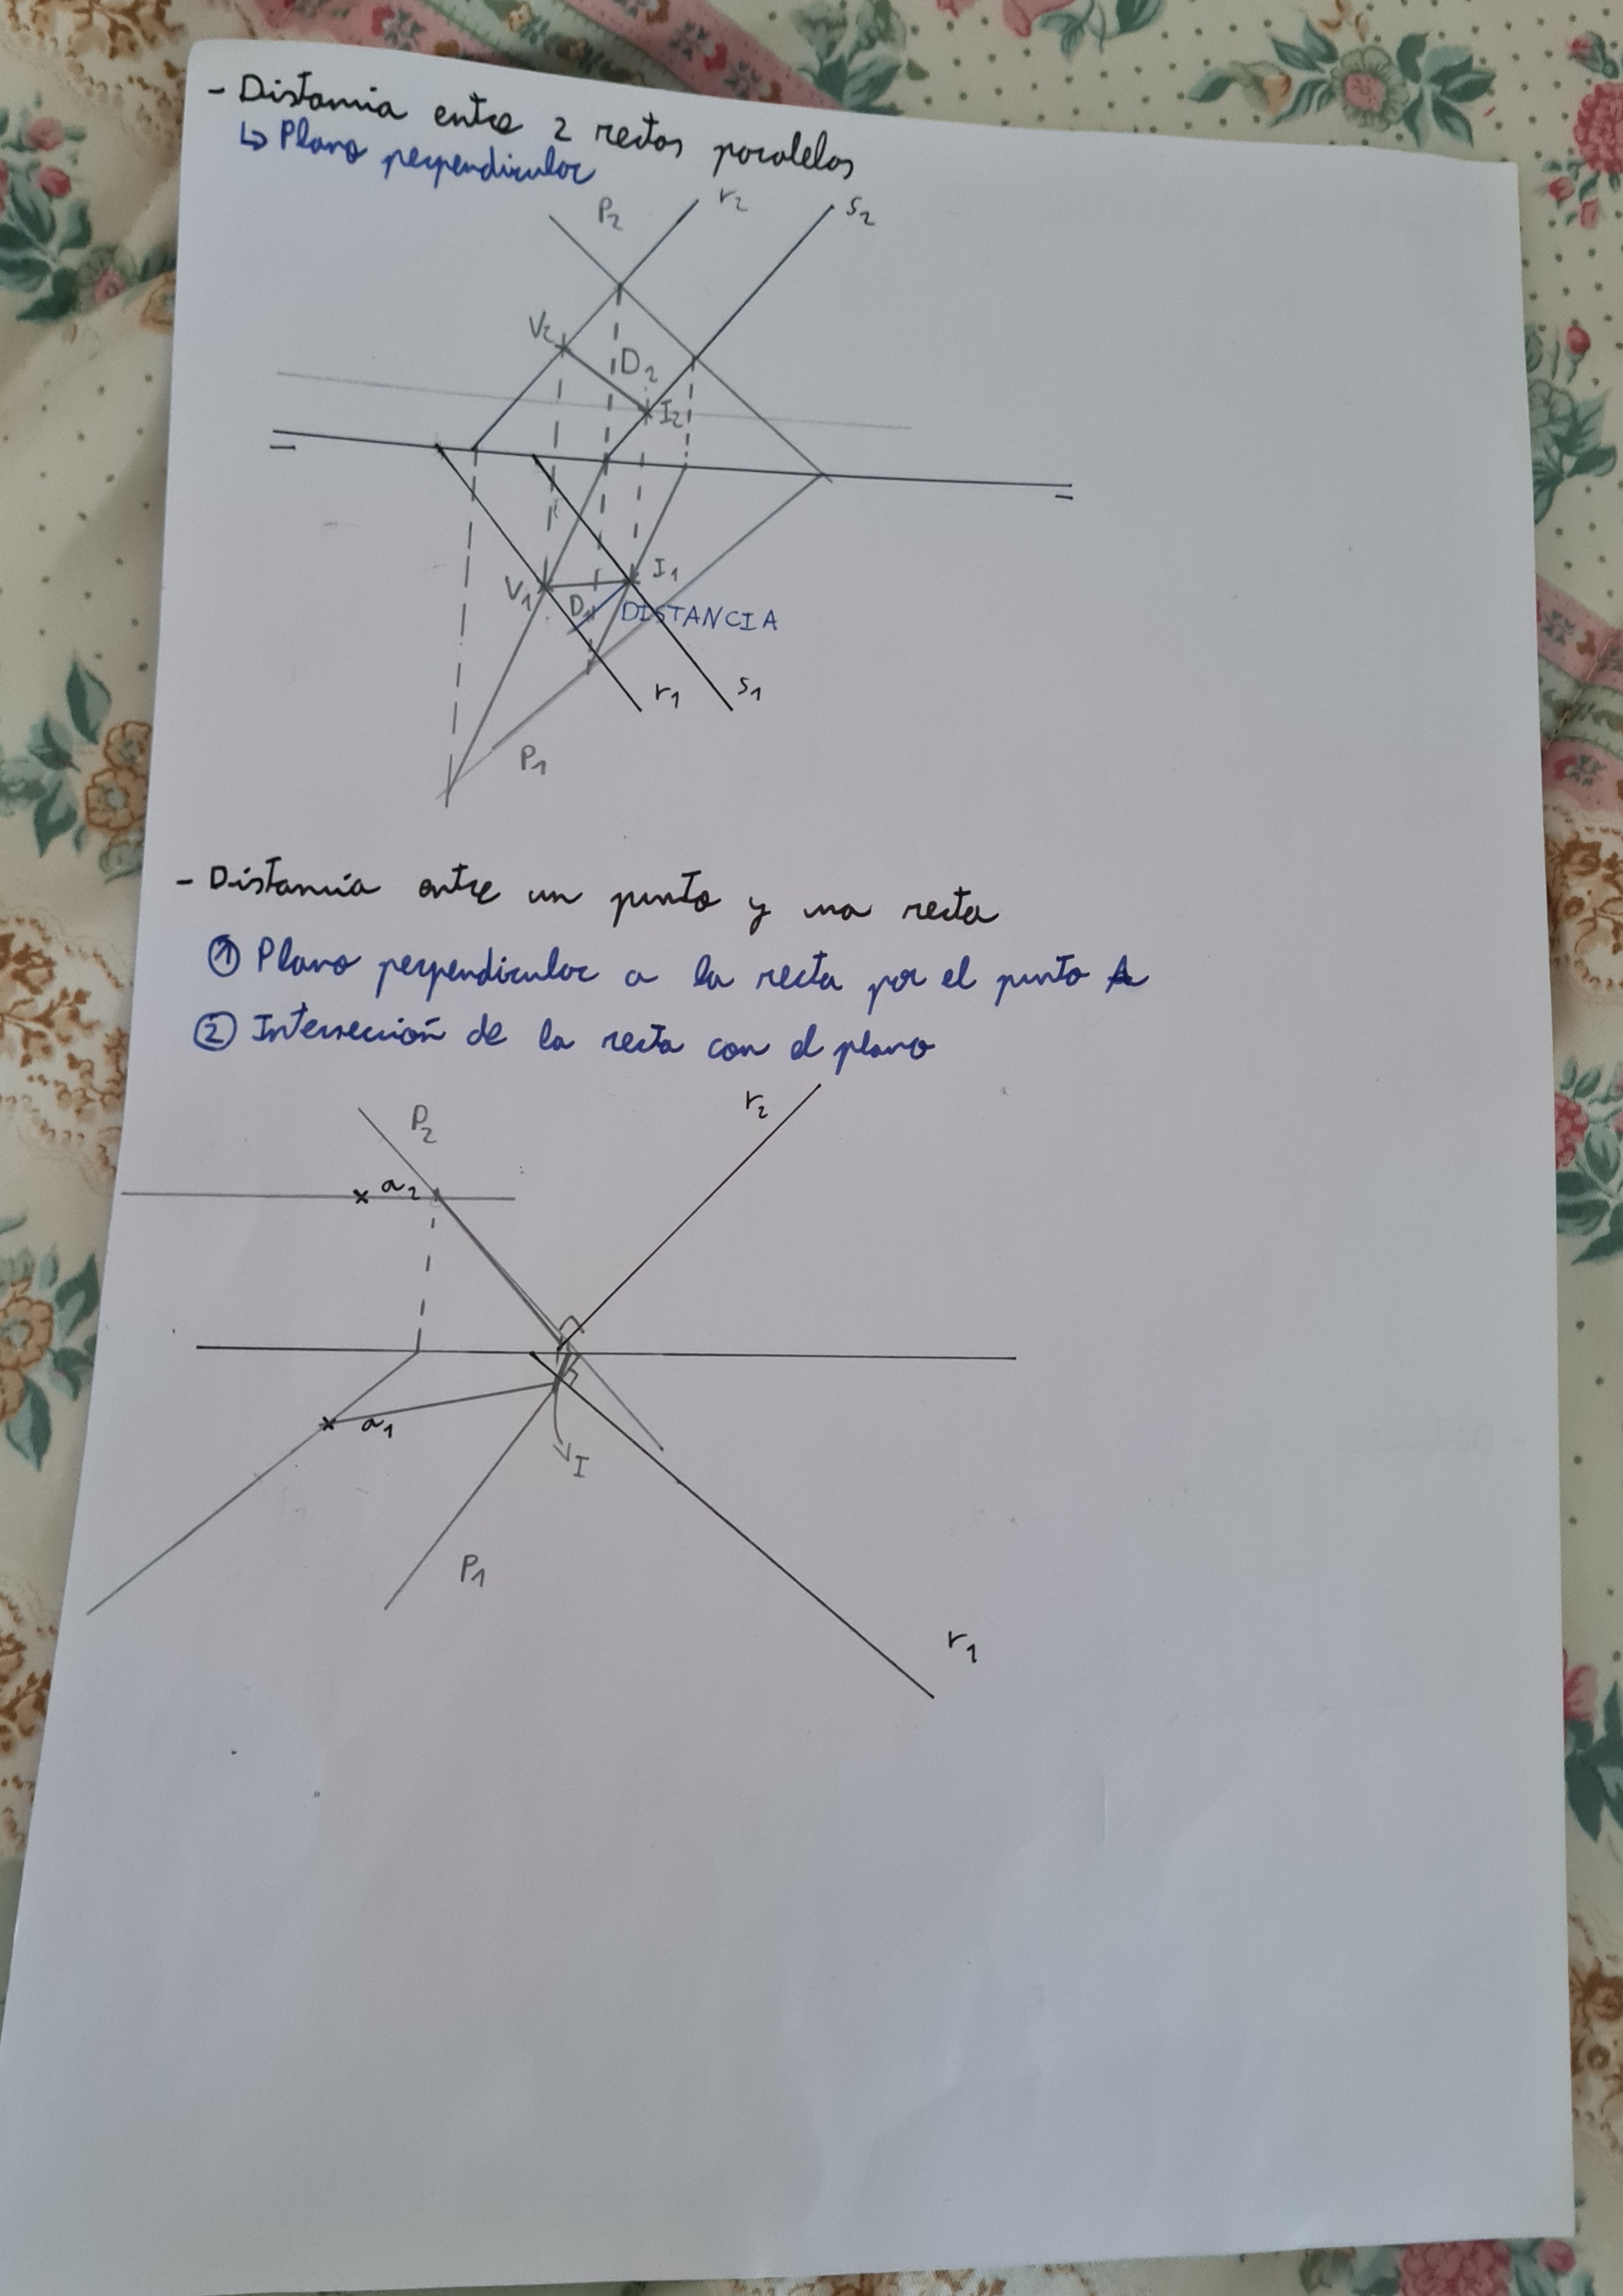 - Distancia entre 2 rectas paralelas
↳ Plano perpendicular
P2 r2 s2
V2
D2
I2
V1 D1 I1
DISTANCIA
r1 s1
P1
- Distancia entre un punto y una recta
① Plano perpendicular a la recta por el punto A
② Intersección de la recta con el plano
P2 r2
a2
a1
I
P1
r1